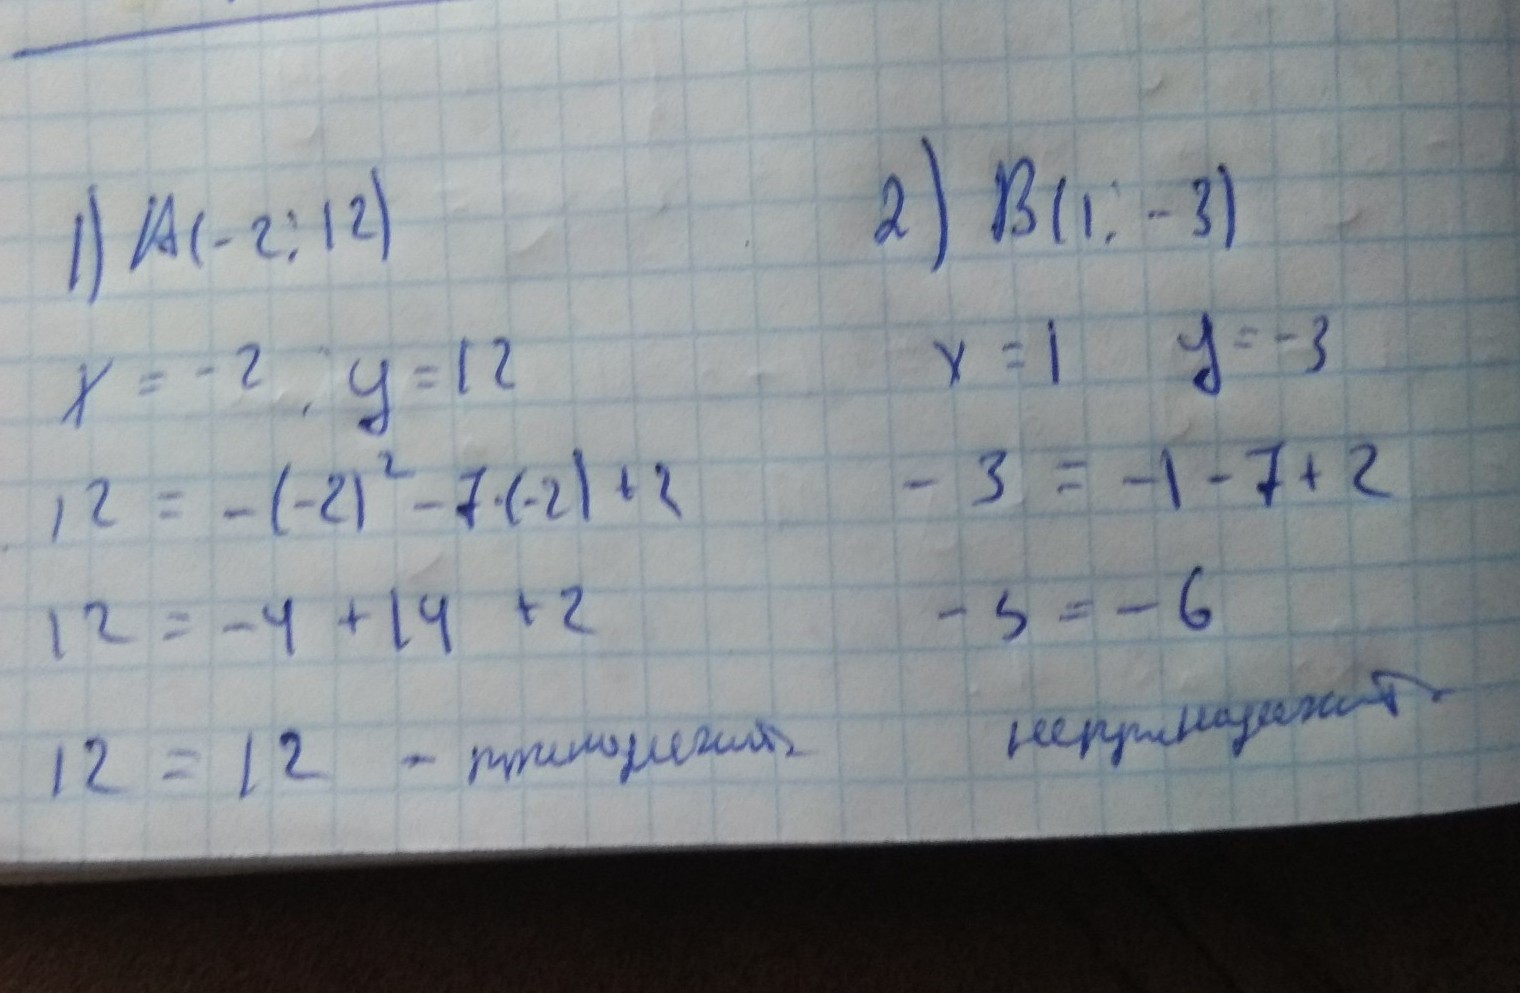 1) A(-2; 12)
x = -2, y = 12
12 = -(-2)² - 7·(-2) + 2
12 = -4 + 14 + 2
12 = 12 - принадлежит
2) B(1; -3)
x = 1 y = -3
- 3 = -1 - 7 + 2
- 3 = - 6
непринадлежит